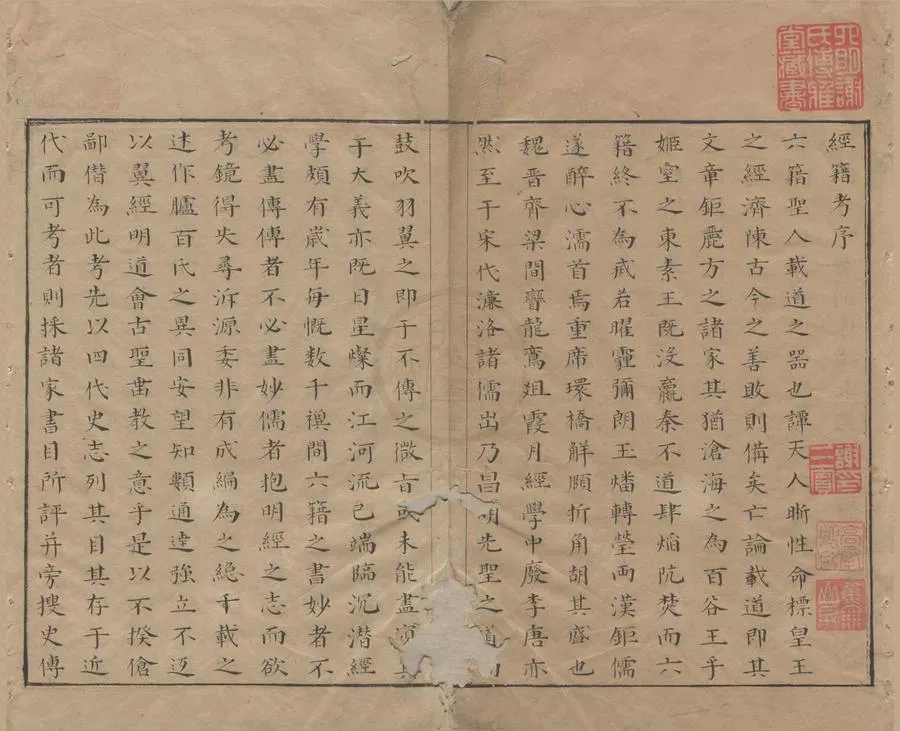 經籍考序
六籍聖人載道之器也譚天人晰性命標皇王
之經濟陳古今之善敗則備矣亡論載道即其
文章鉅麗方之諸家其猶滄海之為百谷王乎
姬室之東素王既沒嬴秦不道肆焰阬焚而六
籍終不為烕若曜霾彌朗玉燔轉瑩两漢鉅儒
遂醉心濡首焉重席環橋觧頤折角胡其盛也
魏晉齊梁間虀龍鸞俎霞月經學中廢李唐亦
然至于宋代濂洛諸儒出乃昌明先聖之道
鼓吹羽翼之即于不傳之微旨或未能盡
于大義亦既日星燦而江河流已端臨沉潜經
學頗有歲年每慨数千禩間六籍之書妙者不
必盡傳傳者不必盡妙儒者抱明經之志而欲
考鏡得失尋泝源委非有成編為之緫千載之
述作臚百氏之異同安望知類通達強立不返
以翼經明道會古聖畱教之意乎是以不揆傖
鄙僭為此考先以四代史志列其目其存于近
代而可考者則採諸家書目所評并旁搜史傳
謝氏博雅
堂藏書